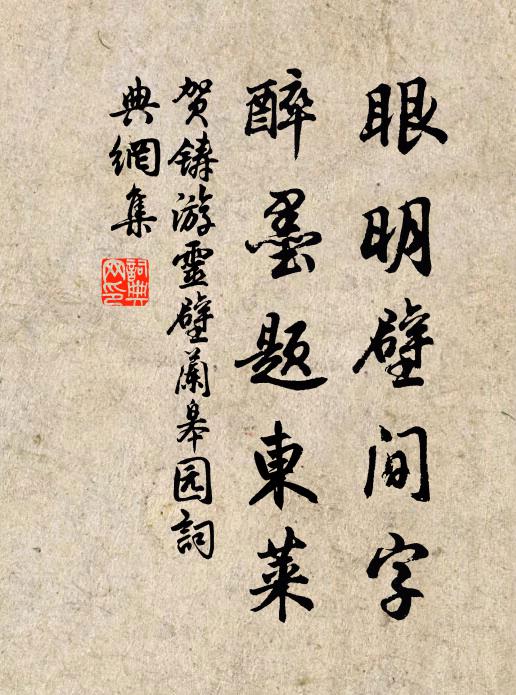 眼明壁间字
醉墨题東莱
贺鑄游靈壁蘭皋园詞
典網集
詞典
网印